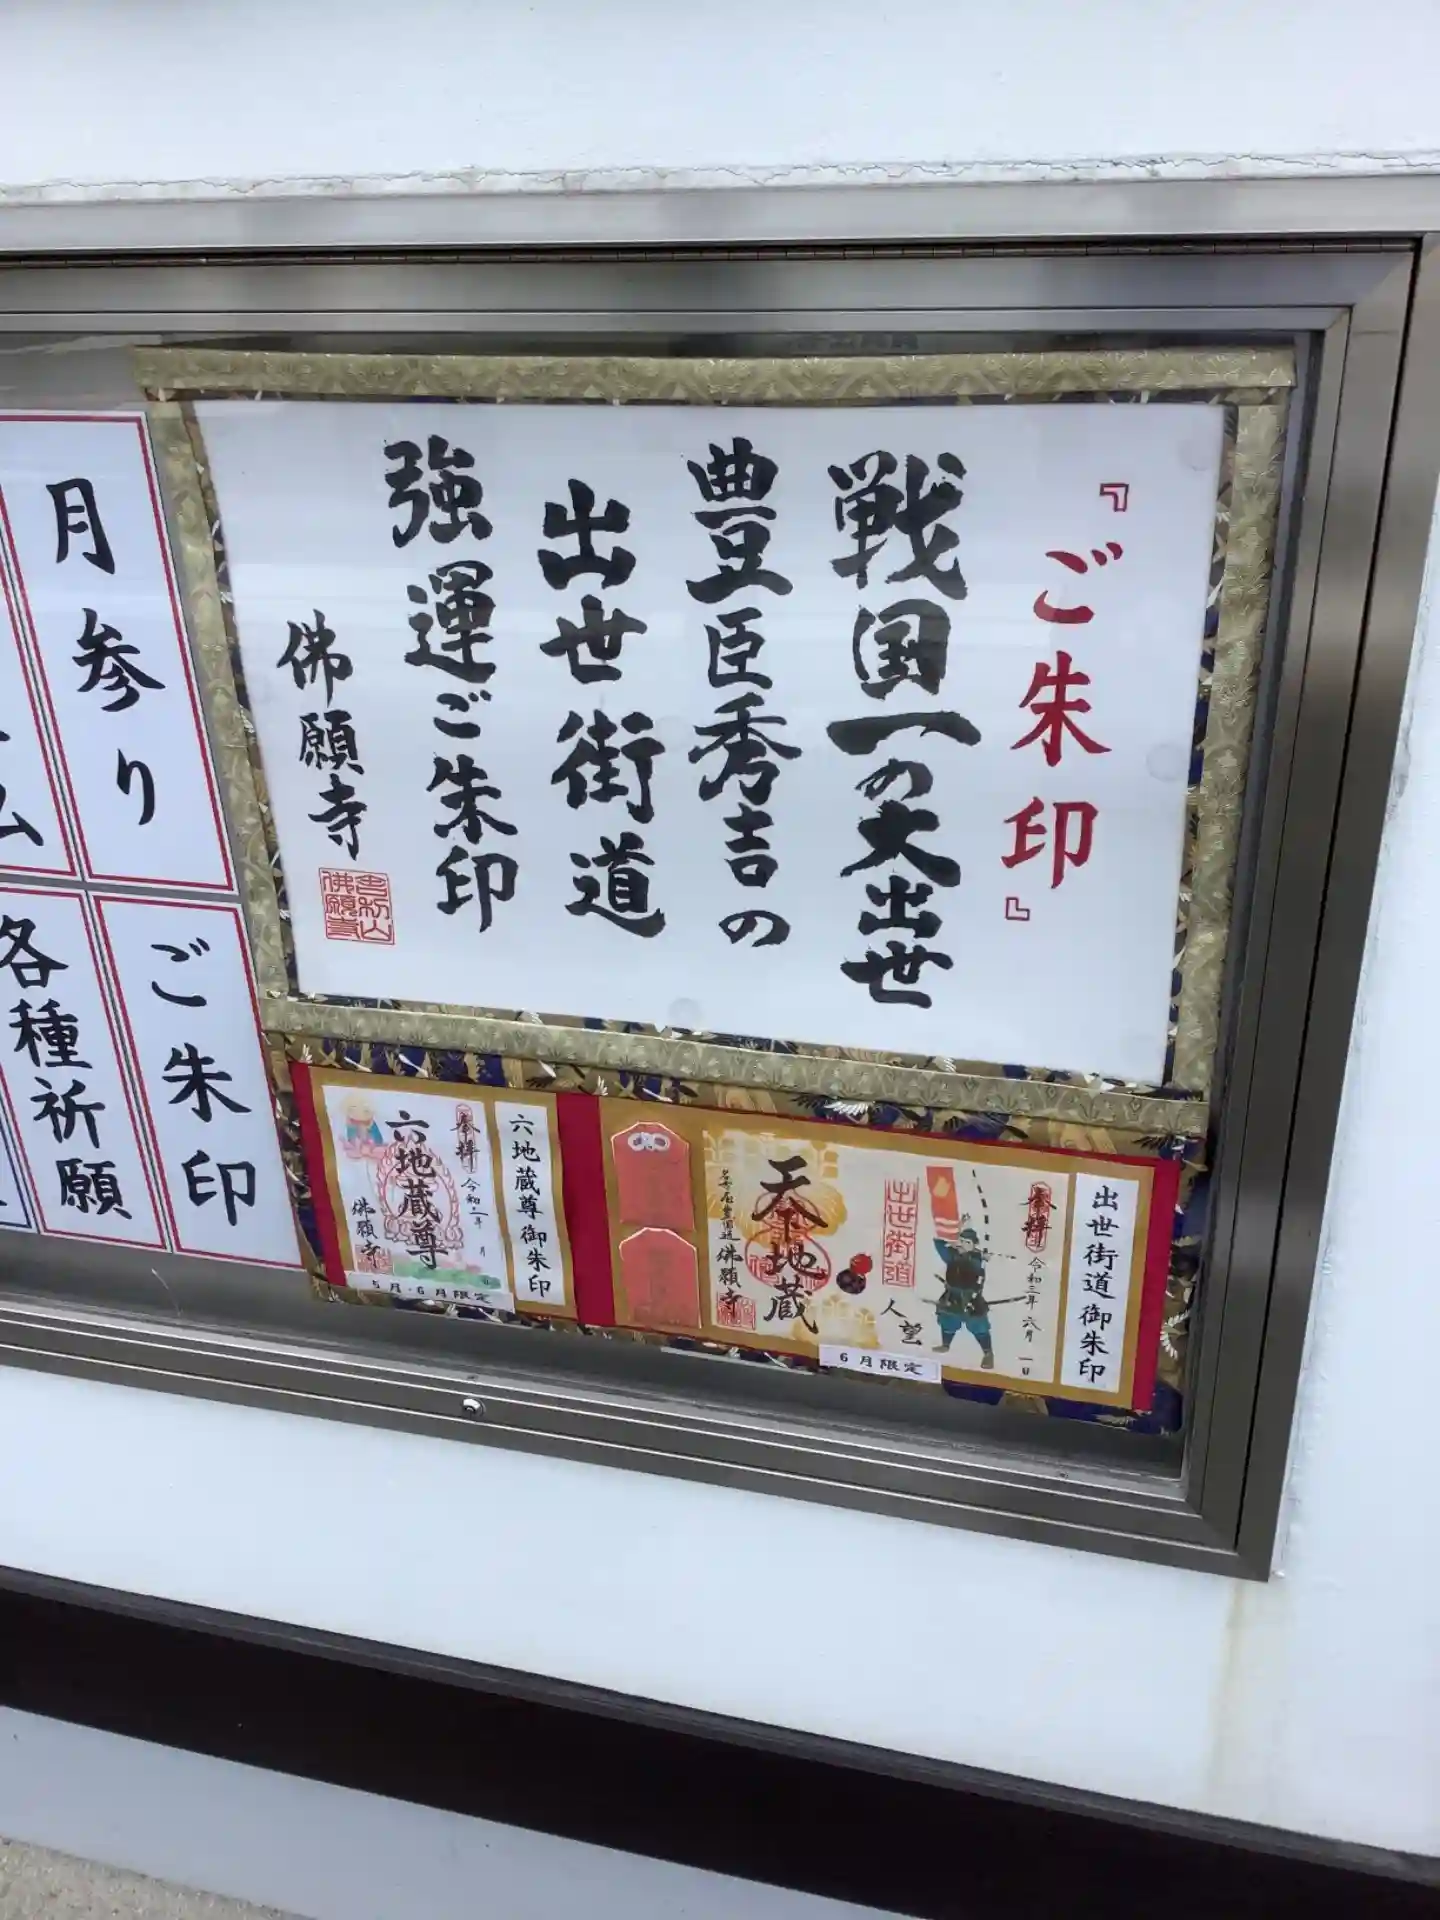 『ご朱印』
戦国一の大出世
豊臣秀吉の
出世街道
強運ご朱印
佛願寺
月参り
ご朱印
各種祈願
出世街道御朱印
奉拝
令和三年六月一日
人望
出世街道
天下地蔵
佛願寺
6月限定
六地蔵尊御朱印
奉拝
令和二年 月 日
六地蔵尊
佛願寺
5月・6月限定